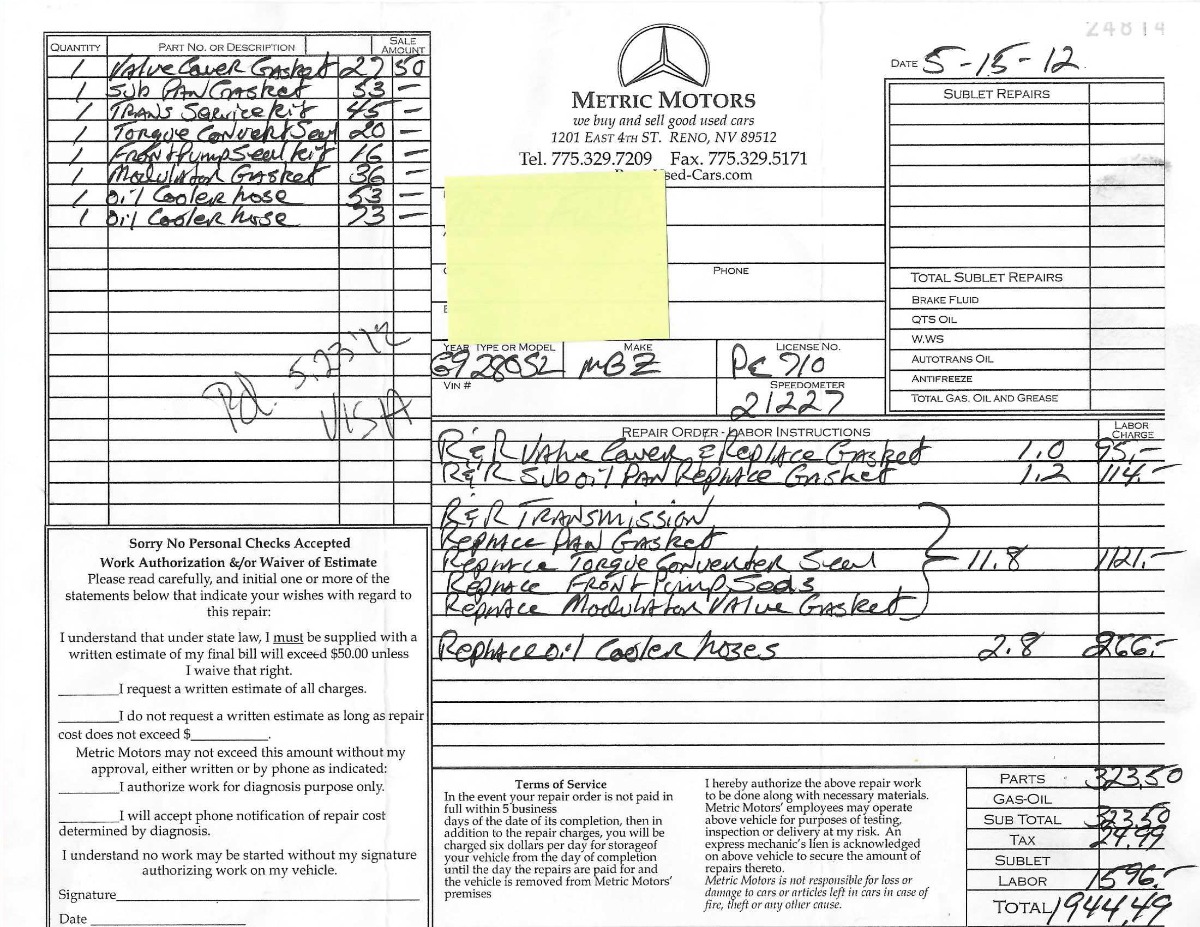 24814
QUANTITY PART NO. OR DESCRIPTION SALE AMOUNT
1 Valve Cover Gasket 27 50
1 Sub Pan Gasket 53 —
1 Trans Service Kit 45 —
1 Torque Convert Seal 20 —
1 Front Pump Seal Kit 16 —
1 Modulator Gasket 36 —
1 Oil Cooler hose 53 —
1 Oil Cooler hose 73 —
Pd. 5.23'12
VISA
METRIC MOTORS
we buy and sell good used cars
1201 EAST 4TH ST. RENO, NV 89512
Tel. 775.329.7209 Fax. 775.329.5171
sed-Cars.com
PHONE
YEAR TYPE OR MODEL MAKE LICENSE NO.
69 280SL MBZ PC 710
VIN # SPEEDOMETER
21227
DATE 5-15-12
SUBLET REPAIRS
TOTAL SUBLET REPAIRS
BRAKE FLUID
QTS OIL
W.WS
AUTOTRANS OIL
ANTIFREEZE
TOTAL GAS. OIL AND GREASE
REPAIR ORDER - LABOR INSTRUCTIONS LABOR CHARGE
R&R Valve Cover & Replace Gasket 1.0 95.-
R&R Sub oil Pan Replace Gasket 1.2 114.-
R&R Transmission
Replace Pan Gasket
Replace Torque Converter Seal 11.8 1121.-
Replace Front Pump Seals
Replace Modulator Valve Gasket
Replace oil Cooler hoses 2.8 266.-
Sorry No Personal Checks Accepted
Work Authorization &/or Waiver of Estimate
Please read carefully, and initial one or more of the
statements below that indicate your wishes with regard to
this repair:
I understand that under state law, I must be supplied with a
written estimate of my final bill will exceed $50.00 unless
I waive that right.
________I request a written estimate of all charges.
________I do not request a written estimate as long as repair
cost does not exceed $__________.
Metric Motors may not exceed this amount without my
approval, either written or by phone as indicated:
________I authorize work for diagnosis purpose only.
________I will accept phone notification of repair cost
determined by diagnosis.
I understand no work may be started without my signature
authorizing work on my vehicle.
Signature________________________
Date ________________
Terms of Service
In the event your repair order is not paid in
full within 5 business
days of the date of its completion, then in
addition to the repair charges, you will be
charged six dollars per day for storageof
your vehicle from the day of completion
until the day the repairs are paid for and
the vehicle is removed from Metric Motors'
premises
I hereby authorize the above repair work
to be done along with necessary materials.
Metric Motors' employees may operate
above vehicle for purposes of testing,
inspection or delivery at my risk. An
express mechanic's lien is acknowledged
on above vehicle to secure the amount of
repairs thereto.
Metric Motors is not responsible for loss or
damage to cars or articles left in cars in case of
fire, theft or any other cause.
PARTS 323.50
GAS-OIL
SUB TOTAL 323.50
TAX 24.99
SUBLET
LABOR 1596.-
TOTAL 1944.49